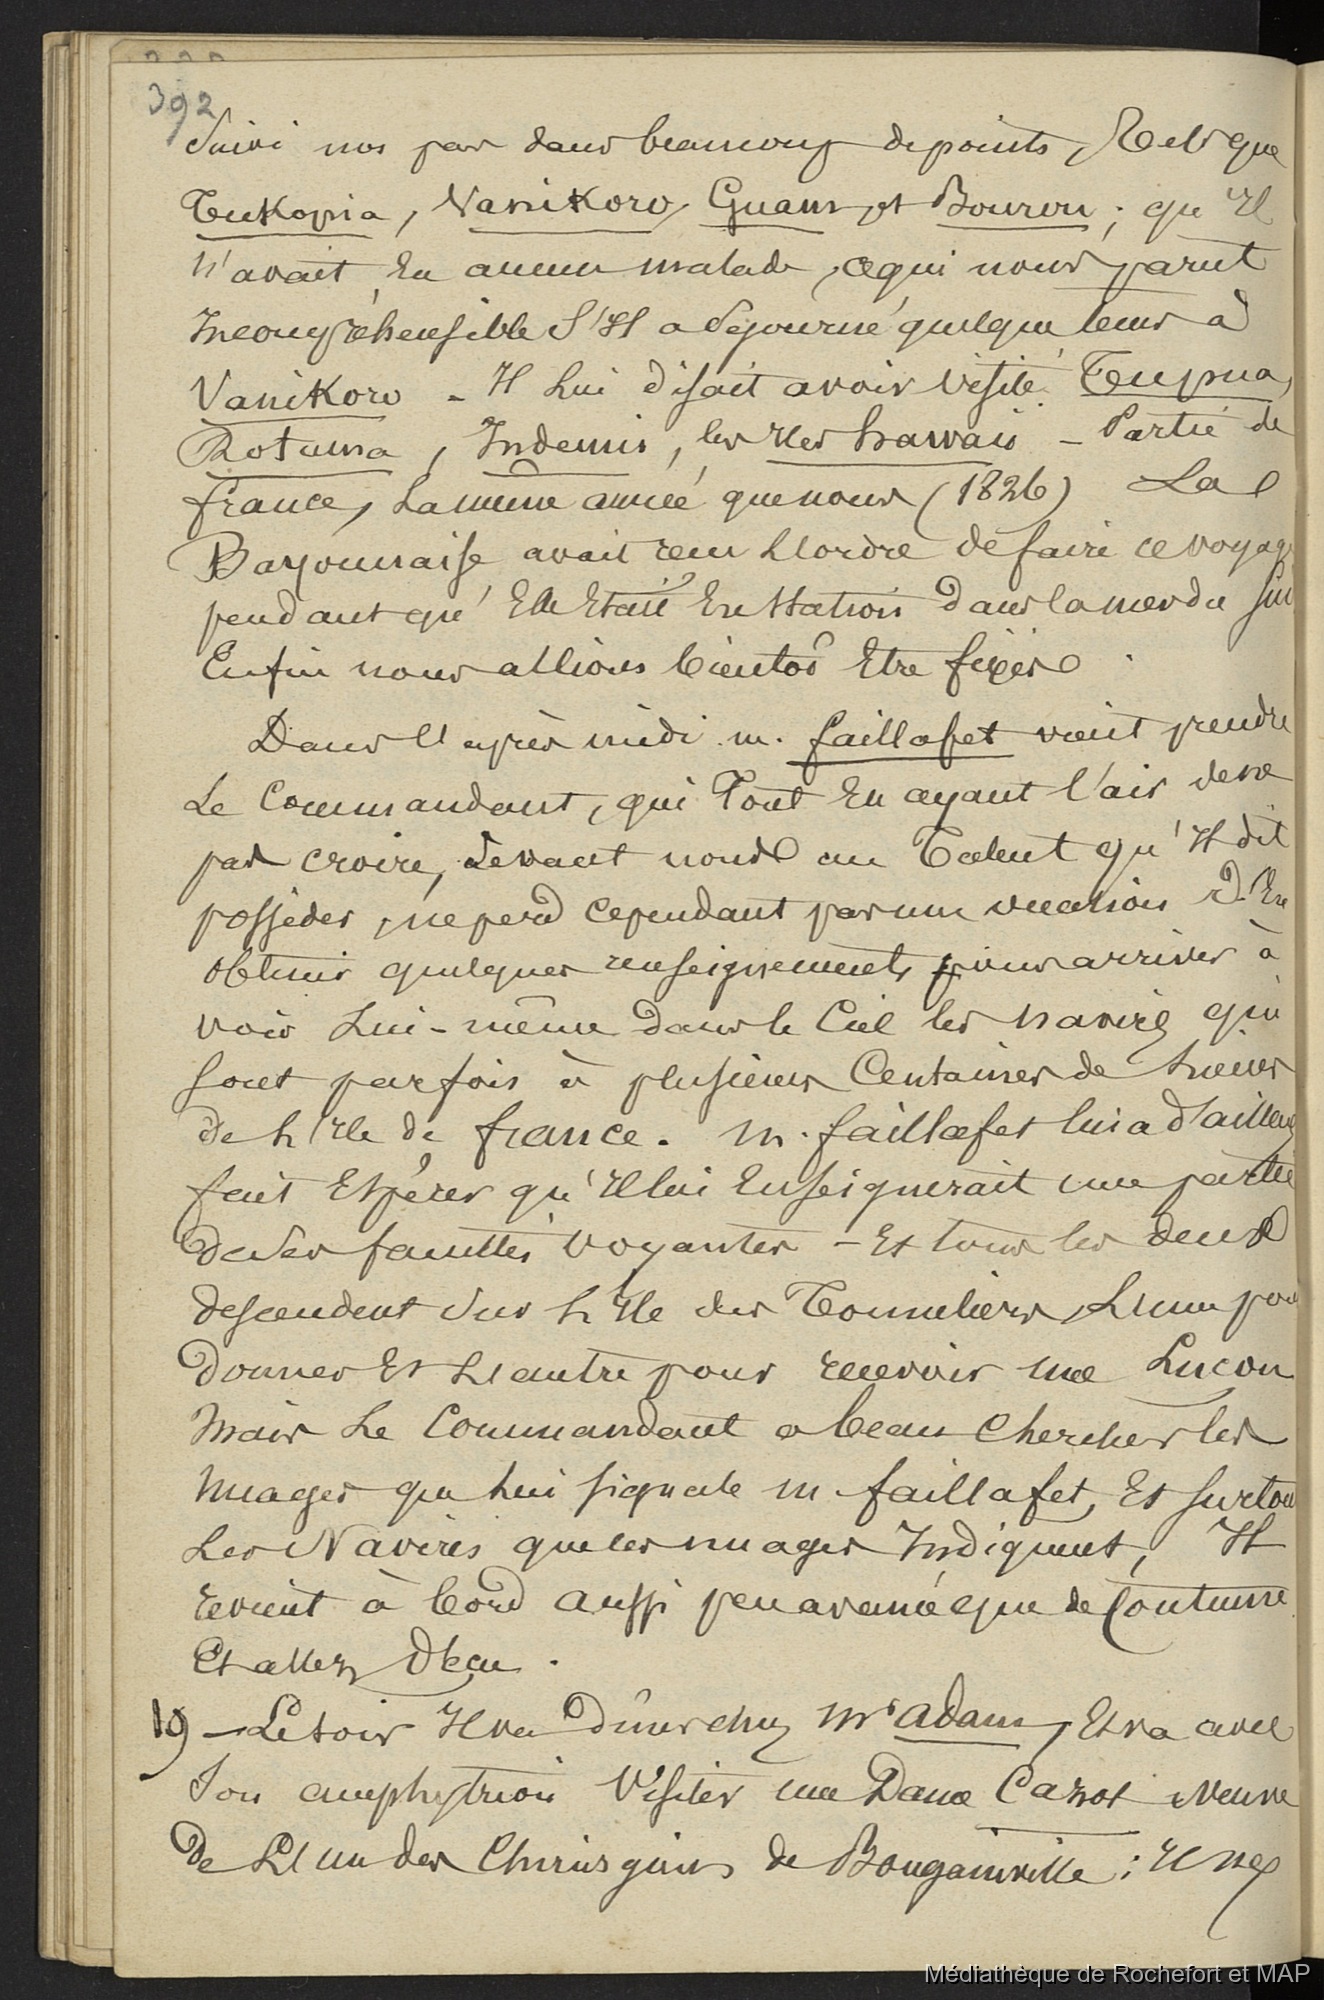 392
Suivi nos pas dans beaucoup de points, Tels que
Tukopia, Vanikoro, Guam et Bourou ; qu'Il
n'avait Eu aucun malade, ce qui nous parut
Incompréhensible S'Il a Séjourné quelque tems à
Vanikoro - Il Lui disait avoir visité Teupua,
Rotuma, Indemis, les Iles hawaii - Partie de
france, La meme année que nous (1826) La
Bayonnaise avait recu L'ordre de faire ce voyage
pendant qu'Elle Etait En Station dans la mer du Sud
Enfin nous allions bientot Etre fixés.
Dans l'après midi m. faillafet vient prendre
Le Commandant, qui Tout En ayant l'air de ne
pas croire, devant nous au Talent qu'Il dit
posséder, ne perd cependant pas une occasion d'En
obtenir quelques renseignements pour arriver à
voir Lui-même dans le Ciel les navires qui
sont parfois à plusieurs Centaines de lieues
de L'Ile de france. m. faillafet lui a d'ailleurs
fait Espérer qu'Il lui Enseignerait une partie
de ses facultés voyantes - Et tous les deux
descendent sur L'Ile des Tonneliers, L'un pour
donner Et L'autre pour recevoir une Lecon
Mais Le Commandant a beau chercher les
Nuages que Lui signale m. faillafet, Et surtout
Les Navires que les nuages Indiquent, Il
revient à bord aussi peu avancé que de Coutume
Et allez D'eau.
19 - Le soir Il va Diner chez Mr adam, Et va avec
Son amphytrion Visiter une Dame Cazot Veuve
de L'un des Chirurgiens de Bougainville ; Il
Médiathèque de Rochefort et MAP